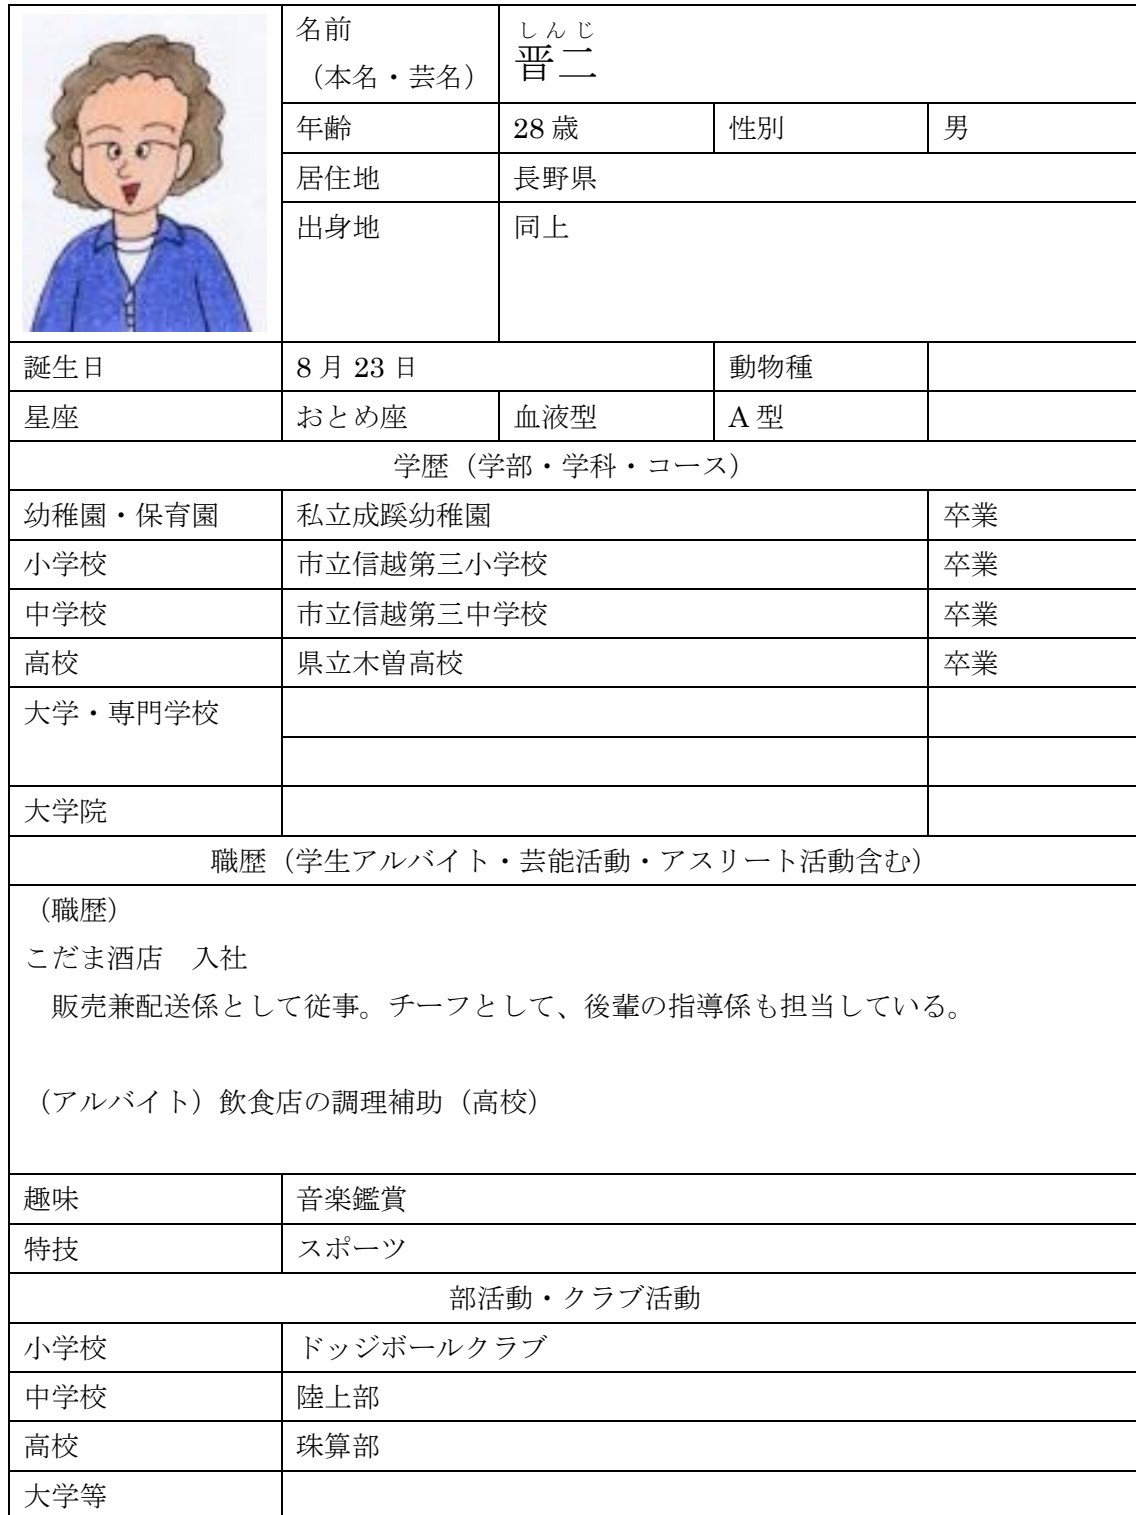 しんじ
名前
（本名・芸名）
晋二
年齢 28歳 性別 男
居住地 長野県
出身地 同上
誕生日 8月23日 動物種
星座 おとめ座 血液型 A型
学歴（学部・学科・コース）
幼稚園・保育園 私立成蹊幼稚園 卒業
小学校 市立信越第三小学校 卒業
中学校 市立信越第三中学校 卒業
高校 県立木曽高校 卒業
大学・専門学校
大学院
職歴（学生アルバイト・芸能活動・アスリート活動含む）
（職歴）
こだま酒店　入社
　販売兼配送係として従事。チーフとして、後輩の指導係も担当している。
（アルバイト）飲食店の調理補助（高校）
趣味 音楽鑑賞
特技 スポーツ
部活動・クラブ活動
小学校 ドッジボールクラブ
中学校 陸上部
高校 珠算部
大学等